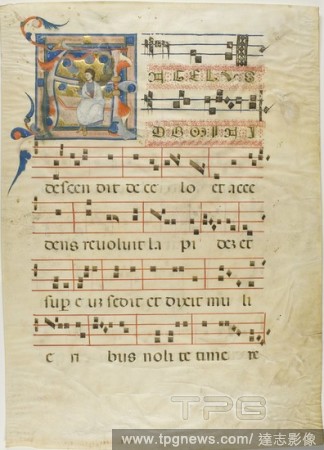 NGELVS
DOMINI
descen dit de ce lo et acce
dens revoluit la pi dez et
sup e uz sedit et dixit mu li
e ri bus noli te time re
TPG
www.tpgnews.com / 達志影像